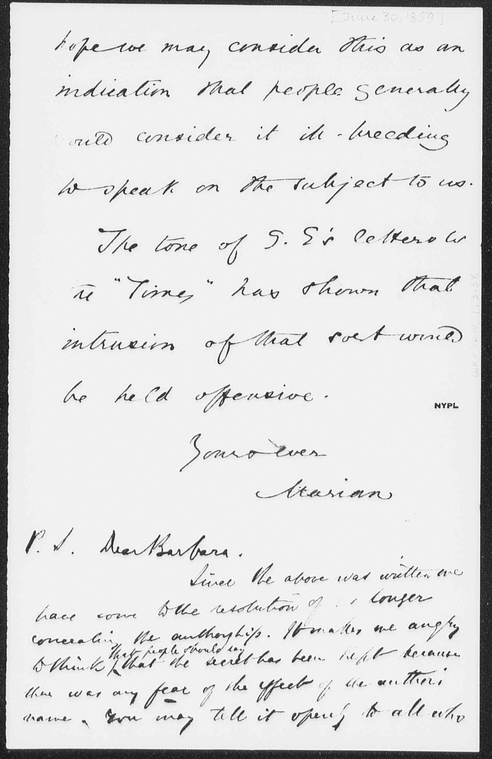 [June 30, 1859]
hope we may consider this as an
indication that people generally
would consider it ill-breeding
to speak on the subject to us.
The tone of G. E's letters to
the "Times" has shown that
intrusion of that sort would
be held offensive.
NYPL
Yours ever
Marian
P. S. Dear Barbara.
Since the above was written we
have come to the resolution of no longer
concealing the authorship. It makes me angry
that people should say
to think that the secret has been kept because
there was any fear of the effect of the author's
name. You may tell it openly to all who